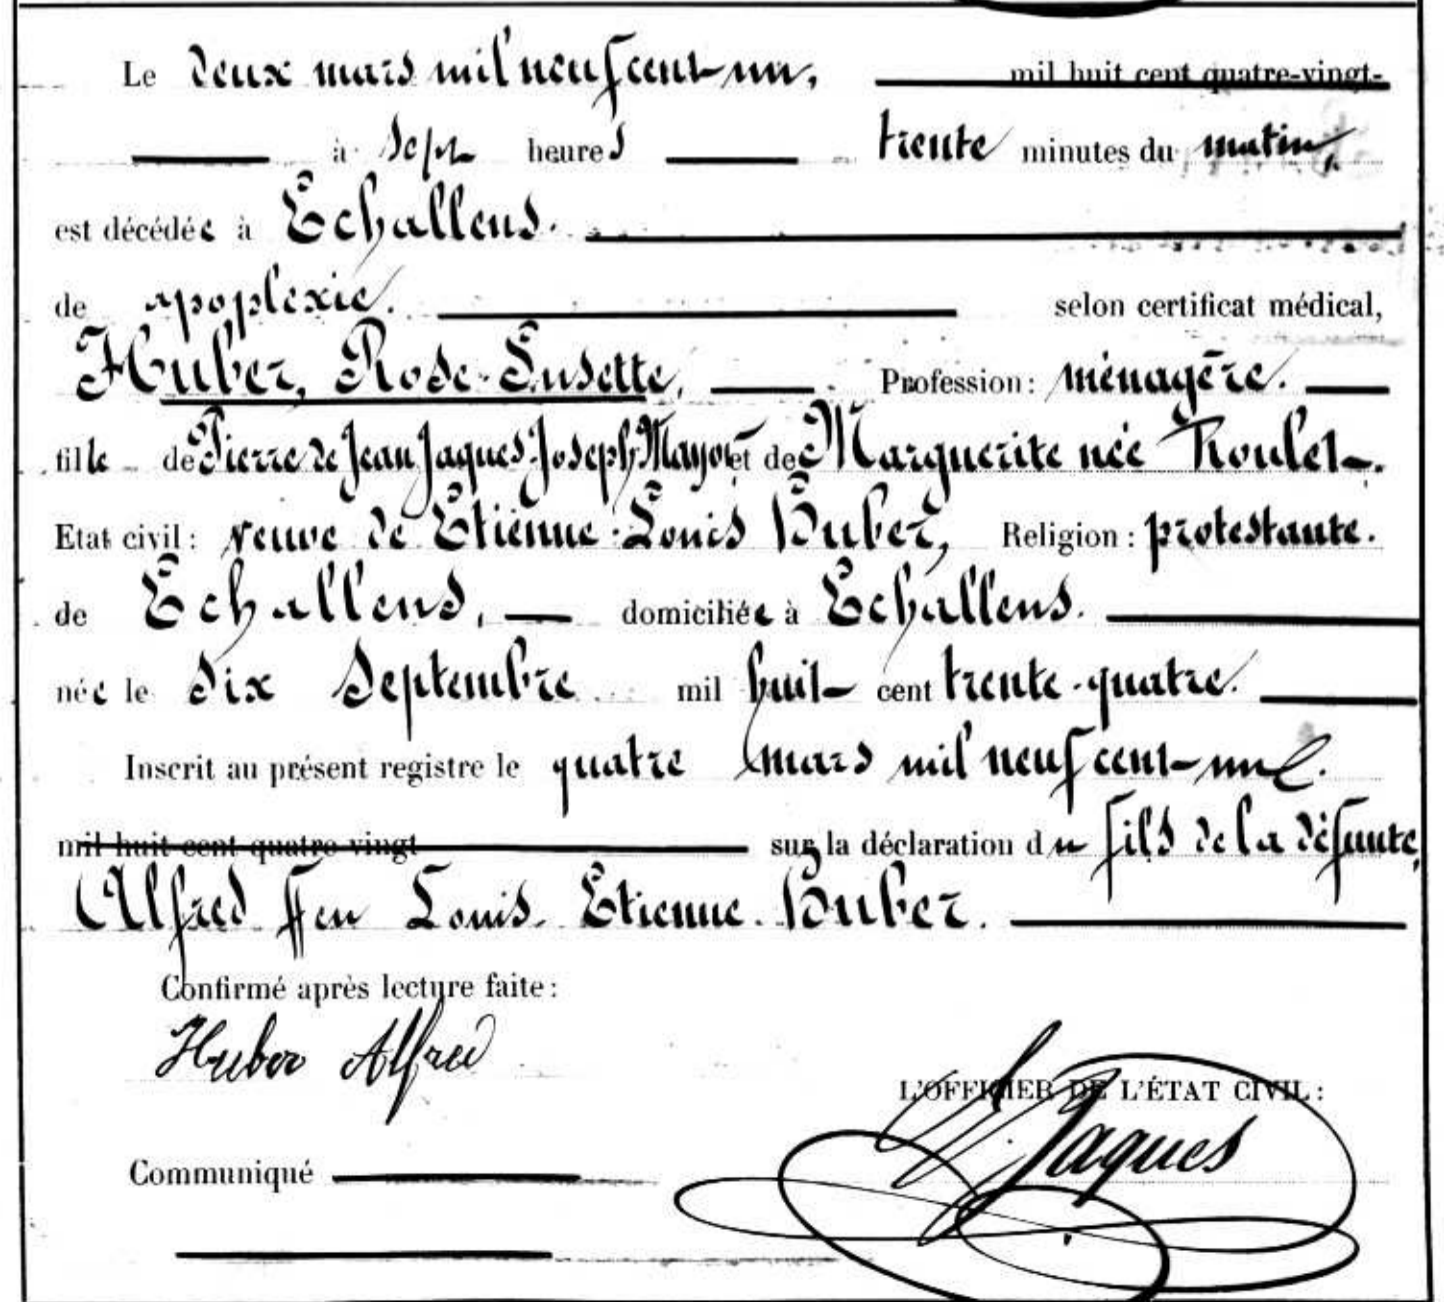 Le deux mars mil neuf cent un, mil huit cent quatre-vingt-
à sept heures trente minutes du matin,
est décédée à Echallens.
de apoplexie. selon certificat médical,
Huber, Rose-Susette, Profession : ménagère.
fille de Pierre de Jean Jaques-Joseph Mayor et de Marguerite née Roulet.
Etat civil : veuve de Etienne-Louis Huber, Religion : protestante.
de Echallens, domiciliée à Echallens.
née le six Septembre mil huit cent trente-quatre.
Inscrit au présent registre le quatre mars mil neuf cent un.
mil huit cent quatre vingt sur la déclaration du fils de la défunte,
Alfred ffeu Louis-Etienne Huber.
Confirmé après lecture faite :
Huber Alfred
L'OFFICIER DE L'ÉTAT CIVIL :
Jaques
Communiqué